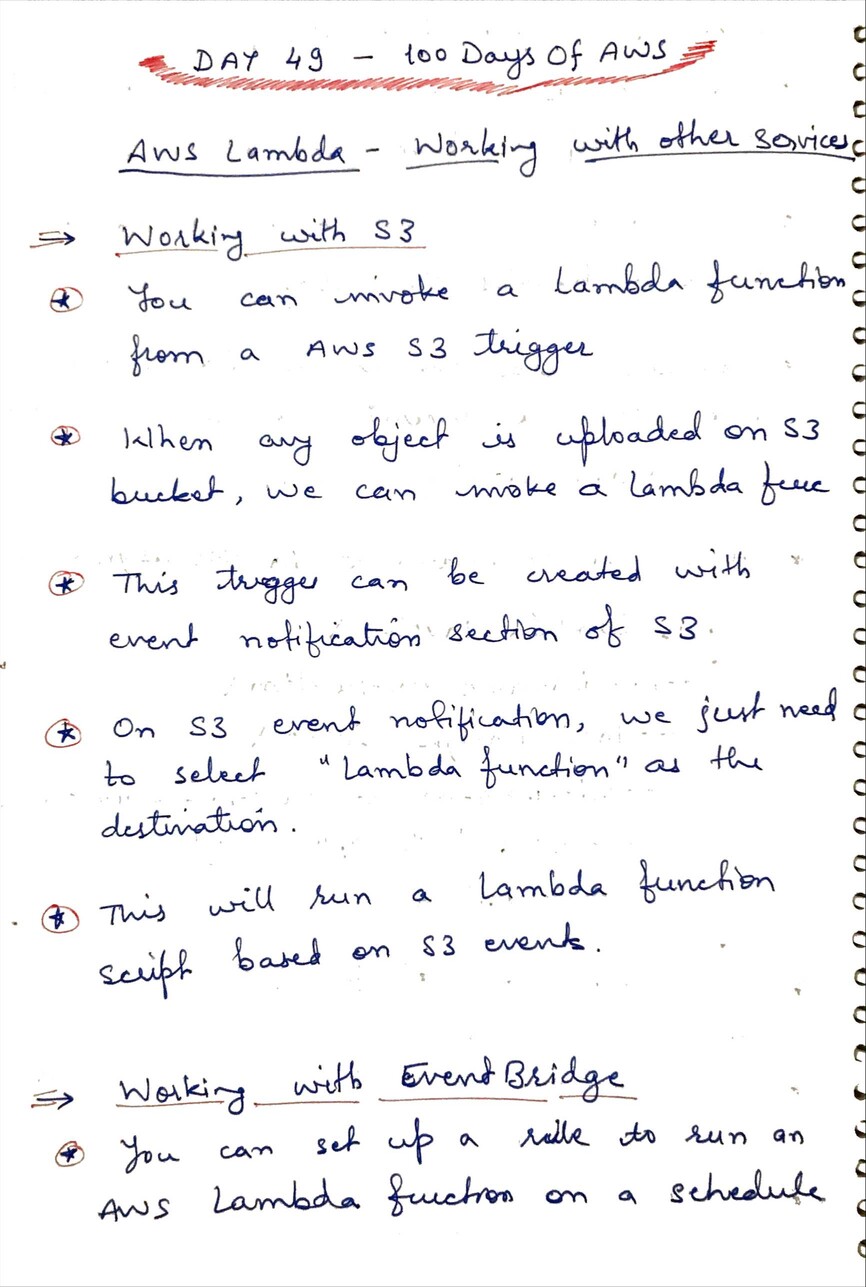 DAY 49 - 100 Days Of AWS
AWS Lambda - Working with other Services
⇒ Working with S3
You can invoke a Lambda function
from a AWS S3 trigger
When any object is uploaded on S3
bucket, we can invoke a lambda func
This trigger can be created with
event notification section of S3.
On S3 event notification, we just need
to select "Lambda function" as the
destination.
This will run a Lambda function
script based on S3 events.
⇒ Working with EventBridge
You can set up a rule to run an
AWS Lambda function on a schedule